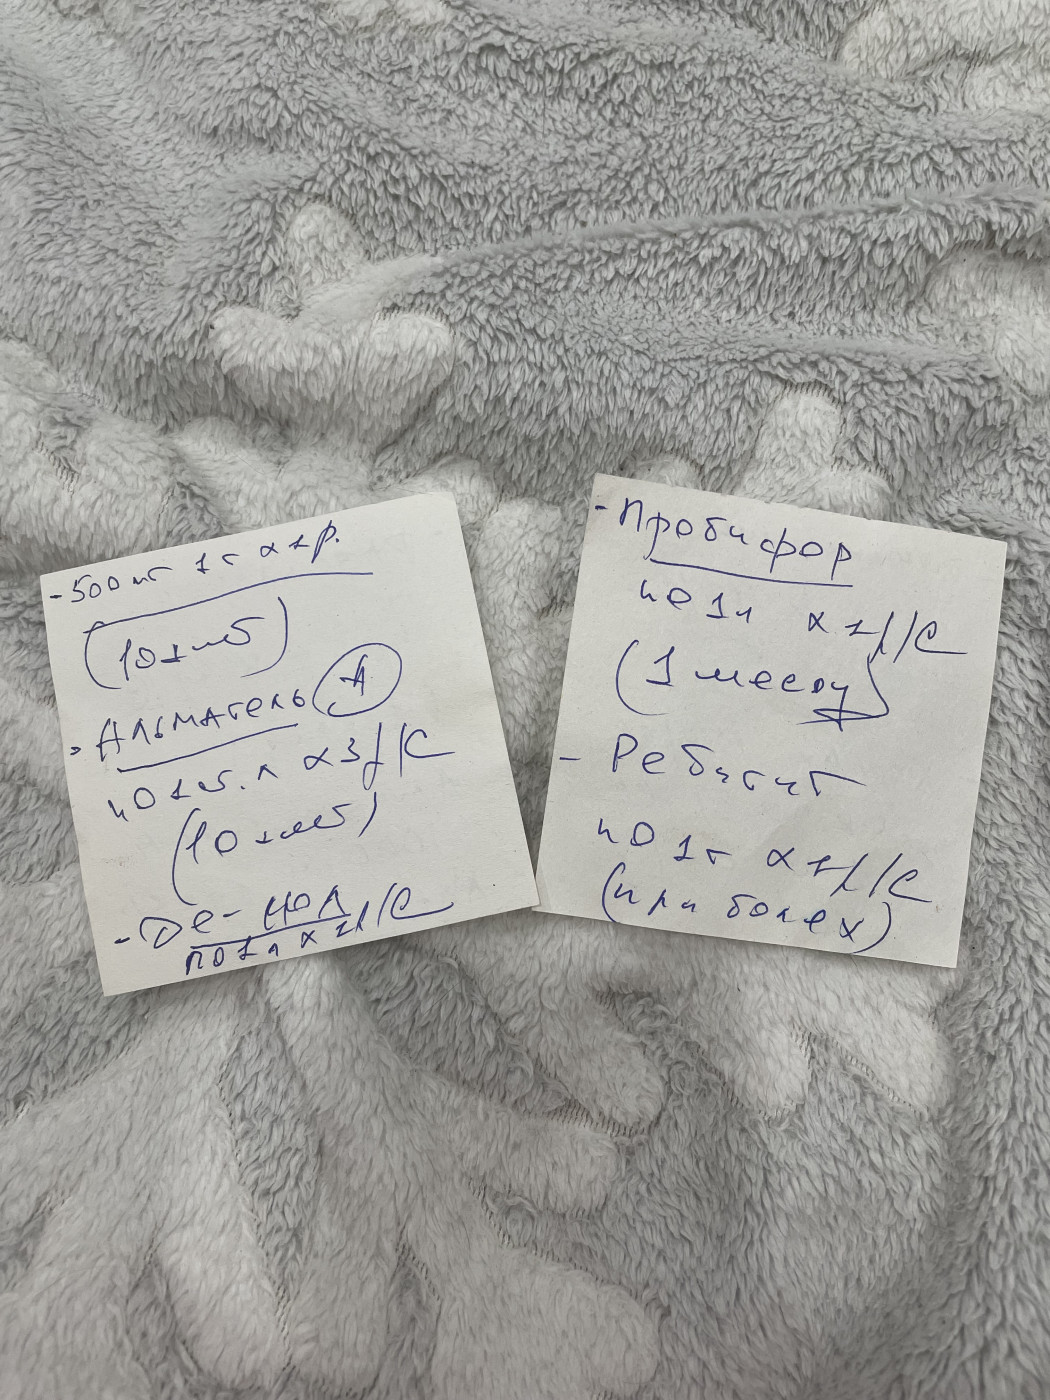 - 500 мг 1т х 2р.
(10 дней)
- Альмагель (А)
по 1 ст. л х3 / С
(10 дней)
- Де-нол
по 1 х 2 / С
- Пробифор
по 1 х 2 / С
(1 месяц)
- Ребагит
по 1т х 2 / С
(при болях)